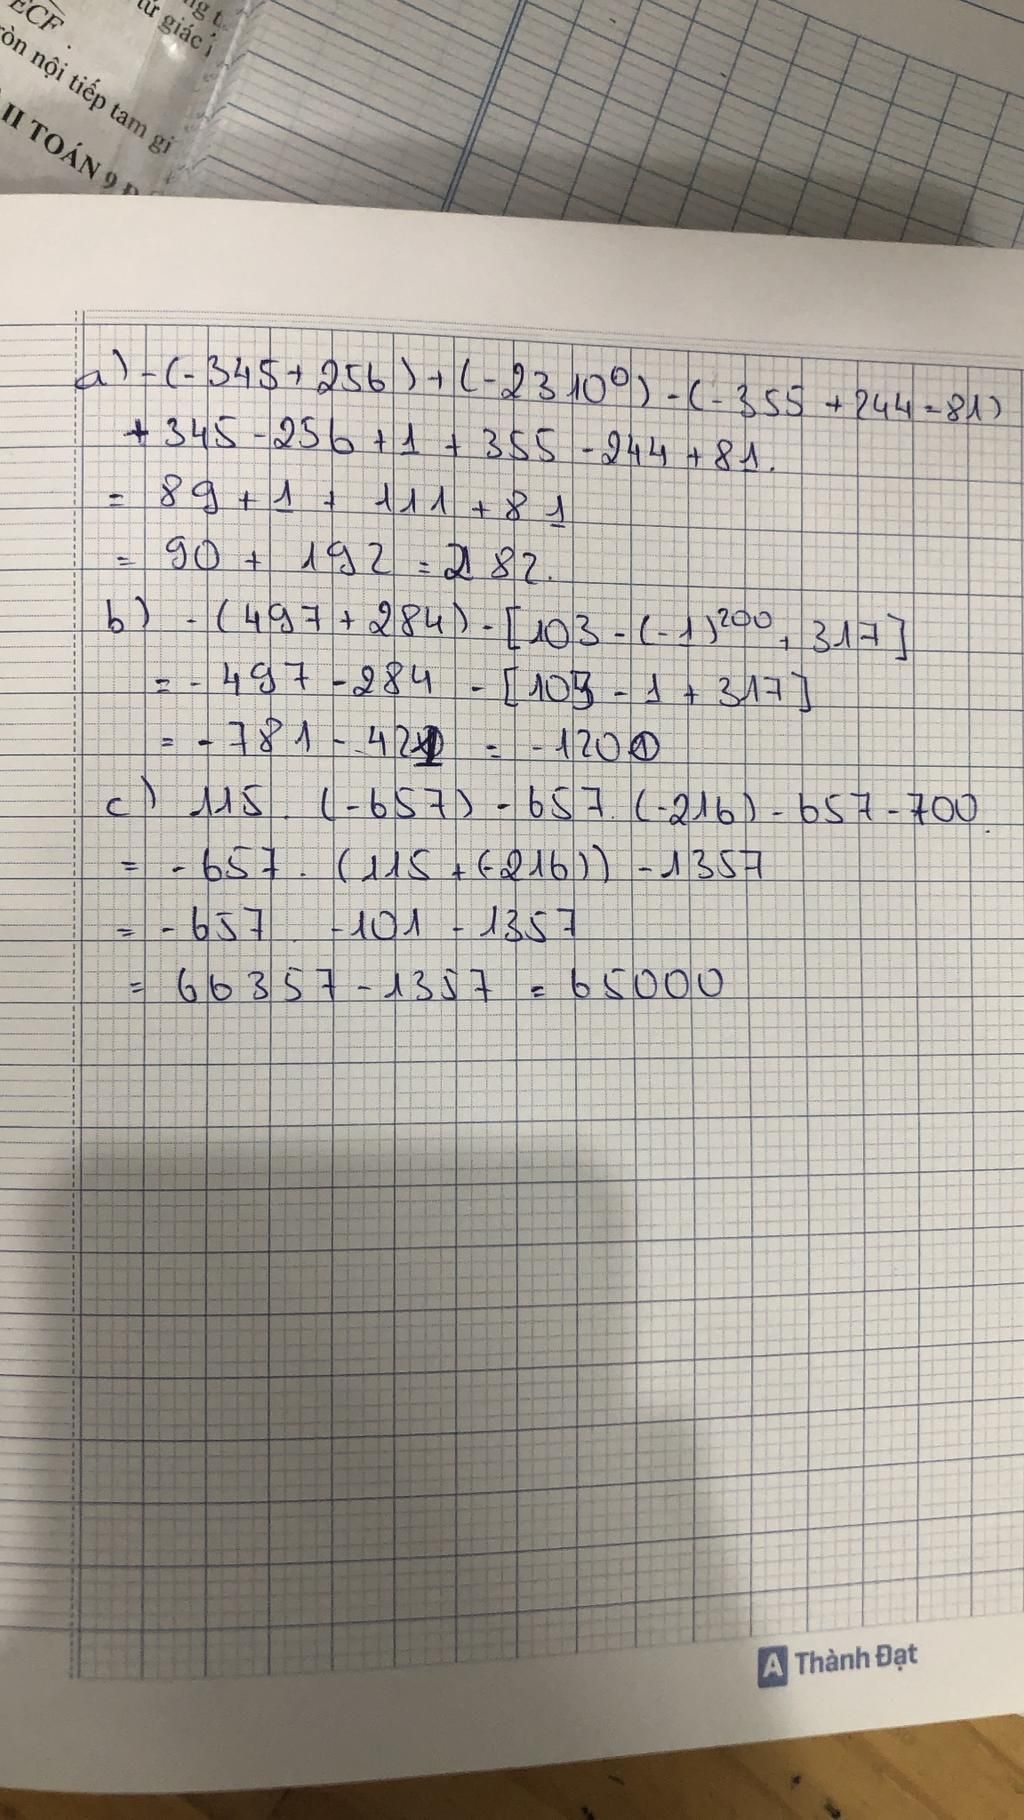 ECF.
tứ giác
ròn nội tiếp tam gi
II TOÁN 9
a) -(-345+256)+(-2310⁰)-(-355+244-81)
+345-256+1+355-244+81.
= 89+1+111+81
= 90+192=282.
b) -(497+284)-[103-(-1)²⁰⁰+317]
= -497-284-[103-1+317]
= -781-420 = -1200
c) 115.(-657)-657.(-216)-657-700.
= -657.(115+(-216))-1357
= -657. -101-1357
= 66357-1357=65000
A Thành Đạt